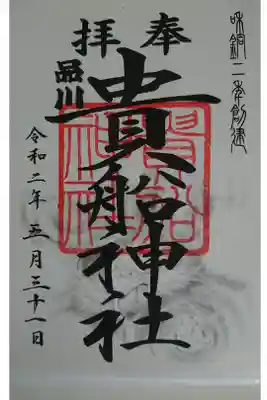 和銅二年創建
奉拝
品川
貴船神社
令和二年五月三十一日